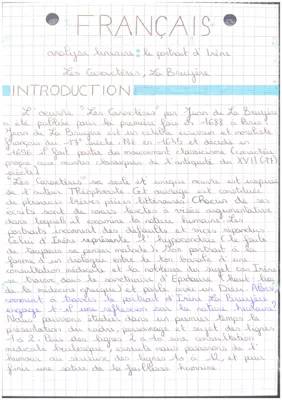 FRANÇAIS
analyse linéaire : le portrait d'Irène
Les Caractères, La Bruyère
INTRODUCTION
L'oeuvre "Les Caractères" par Jean de La Bruyère
a été publiée pour la première fois en 1688 à Paris.
Jean de La Bruyère est un célèbre écrivain et moraliste
français du 17 siècle né en 1645 et décédé en
1696. Il fait partie du mouvement classicisme
propre aux oeuvres classiques de l'antiquité du XVII (17)
siècle
"Les Caractères" sa seule et unique oeuvre est inspirée
de l'auteur Théophraste. Cet ouvrage est constitué
de plusieurs brèves pièces littéraires. Chacun de ses
écrits sont de courts textes à visée argumentative
dans lesquels il examine la nature humaine. Les
portraits incarnent des défauts et vices répandus
Celui d'Irène représente l'hypocondrie (le fait
de toujours se penser malade). Ce portrait a la
forme d'un dialogue entre le ton d'une
consultation médicale et la du sujet car Irène
se trouve dans le sanctuaire d'Épidaure
de médecine grecque) et parle avec un Dieu. Alors
comment à travers le portrait d'Irène La Bruyère
engage-t-il une réflexion sur la nature humaine?
Nous pouvons étudier dans un premier temps la
présentation du cadre, personnage et sujet des lignes
1 à 2. Puis des lignes 2 à 10 une consultation
médicale burlesque, ensuite nous passerons de l'
humour au sérieux des lignes 10 à 12 et pour
finir une satire de la faiblesse humaine.